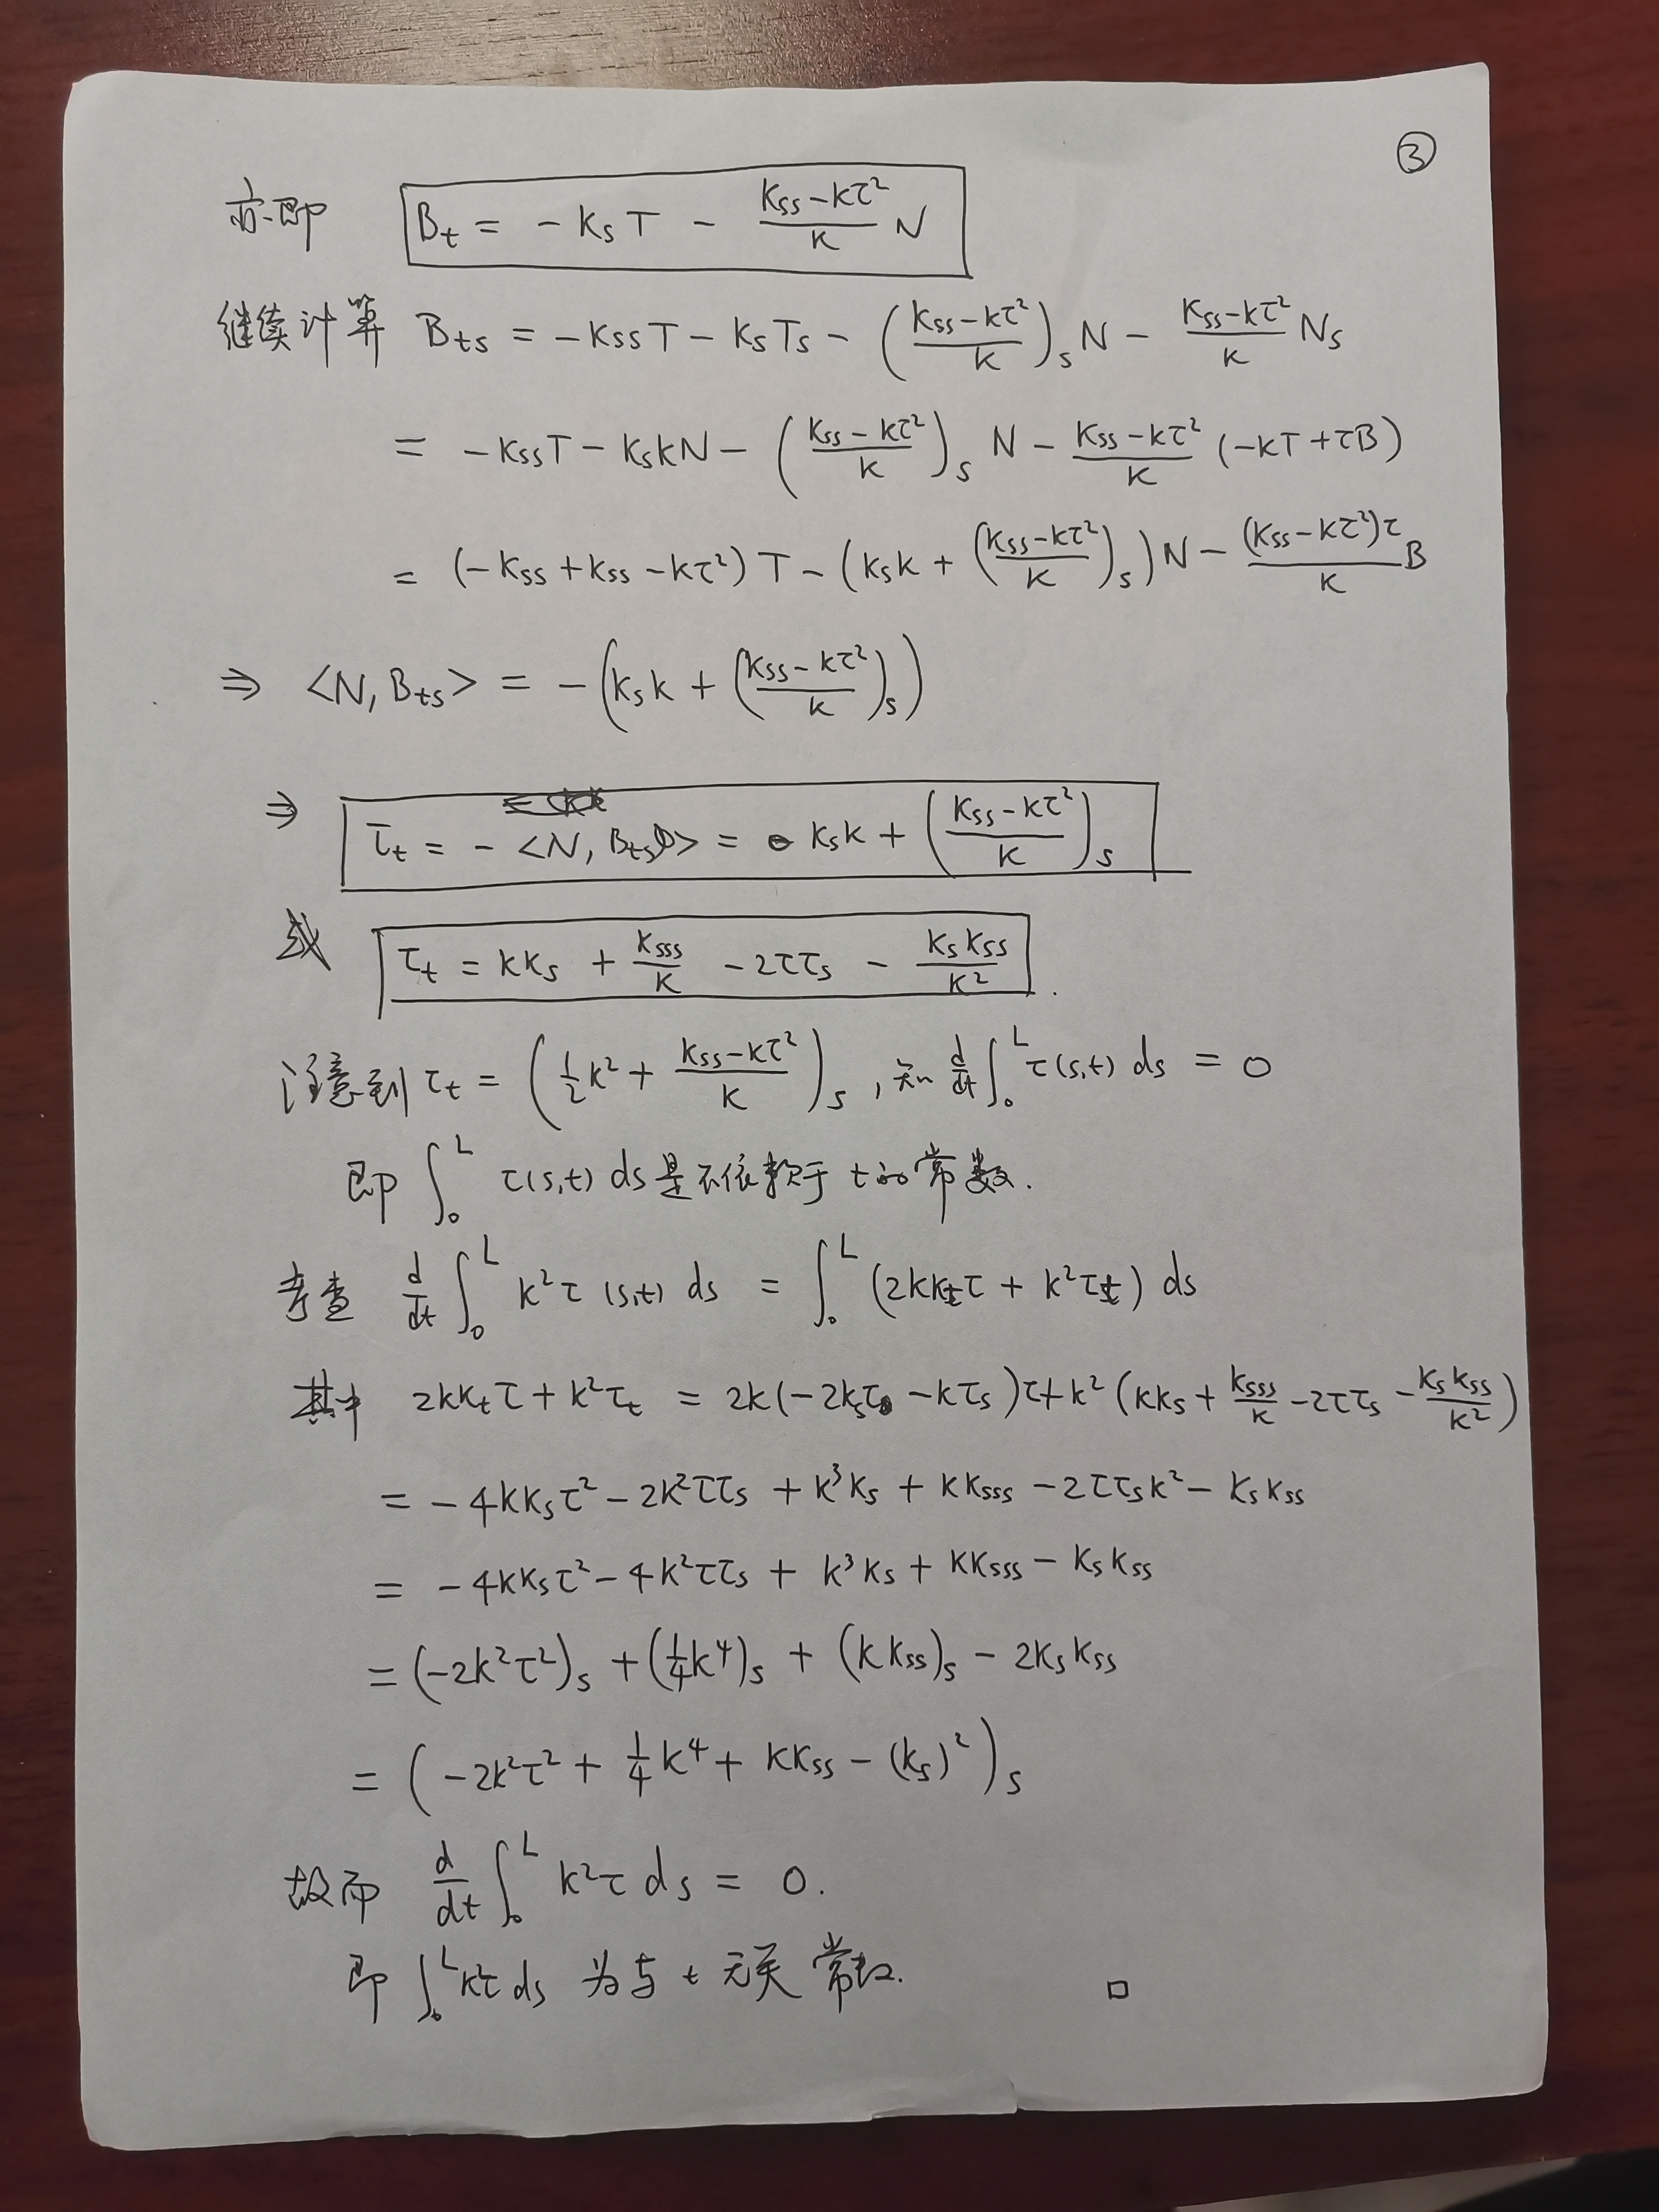 ③
亦即 B_t = - k_s T - \frac{k_{ss} - kτ^2}{k} N
继续计算 B_{ts} = -k_{ss}T - k_s T_s - (\frac{k_{ss} - kτ^2}{k})_s N - \frac{k_{ss} - kτ^2}{k} N_s
= -k_{ss}T - k_s kN - (\frac{k_{ss} - kτ^2}{k})_s N - \frac{k_{ss} - kτ^2}{k} (-kT + τB)
= (-k_{ss} + k_{ss} - kτ^2) T - (k_s k + (\frac{k_{ss} - kτ^2}{k})_s) N - \frac{(k_{ss} - kτ^2)τ}{k} B
⇒ <N, B_{ts}> = - (k_s k + (\frac{k_{ss} - kτ^2}{k})_s)
⇒ τ_t = - <N, B_{ts}> = k_s k + (\frac{k_{ss} - kτ^2}{k})_s
或 τ_t = kk_s + \frac{k_{sss}}{k} - 2ττ_s - \frac{k_s k_{ss}}{k^2} .
注意到 τ_t = (\frac{1}{2}k^2 + \frac{k_{ss} - kτ^2}{k})_s , 知 \frac{d}{dt} ∫_0^L τ(s,t) ds = 0
即 ∫_0^L τ(s,t) ds 是不依赖于 t 的常数.
考查 \frac{d}{dt} ∫_0^L k^2τ (s,t) ds = ∫_0^L (2kk_tτ + k^2τ_t) ds
其中 2kk_tτ + k^2τ_t = 2k(-2k_sτ - kτ_s)τ + k^2 (kk_s + \frac{k_{sss}}{k} - 2ττ_s - \frac{k_s k_{ss}}{k^2})
= -4kk_sτ^2 - 2k^2ττ_s + k^3k_s + kk_{sss} - 2ττ_sk^2 - k_s k_{ss}
= -4kk_sτ^2 - 4k^2ττ_s + k^3k_s + kk_{sss} - k_s k_{ss}
= (-2k^2τ^2)_s + (\frac{1}{4}k^4)_s + (kk_{ss})_s - 2k_s k_{ss}
= (-2k^2τ^2 + \frac{1}{4}k^4 + kk_{ss} - (k_s)^2)_s
故而 \frac{d}{dt} ∫_0^L k^2τ ds = 0.
即 ∫_0^L k^2τ ds 为与 t 无关常数. □